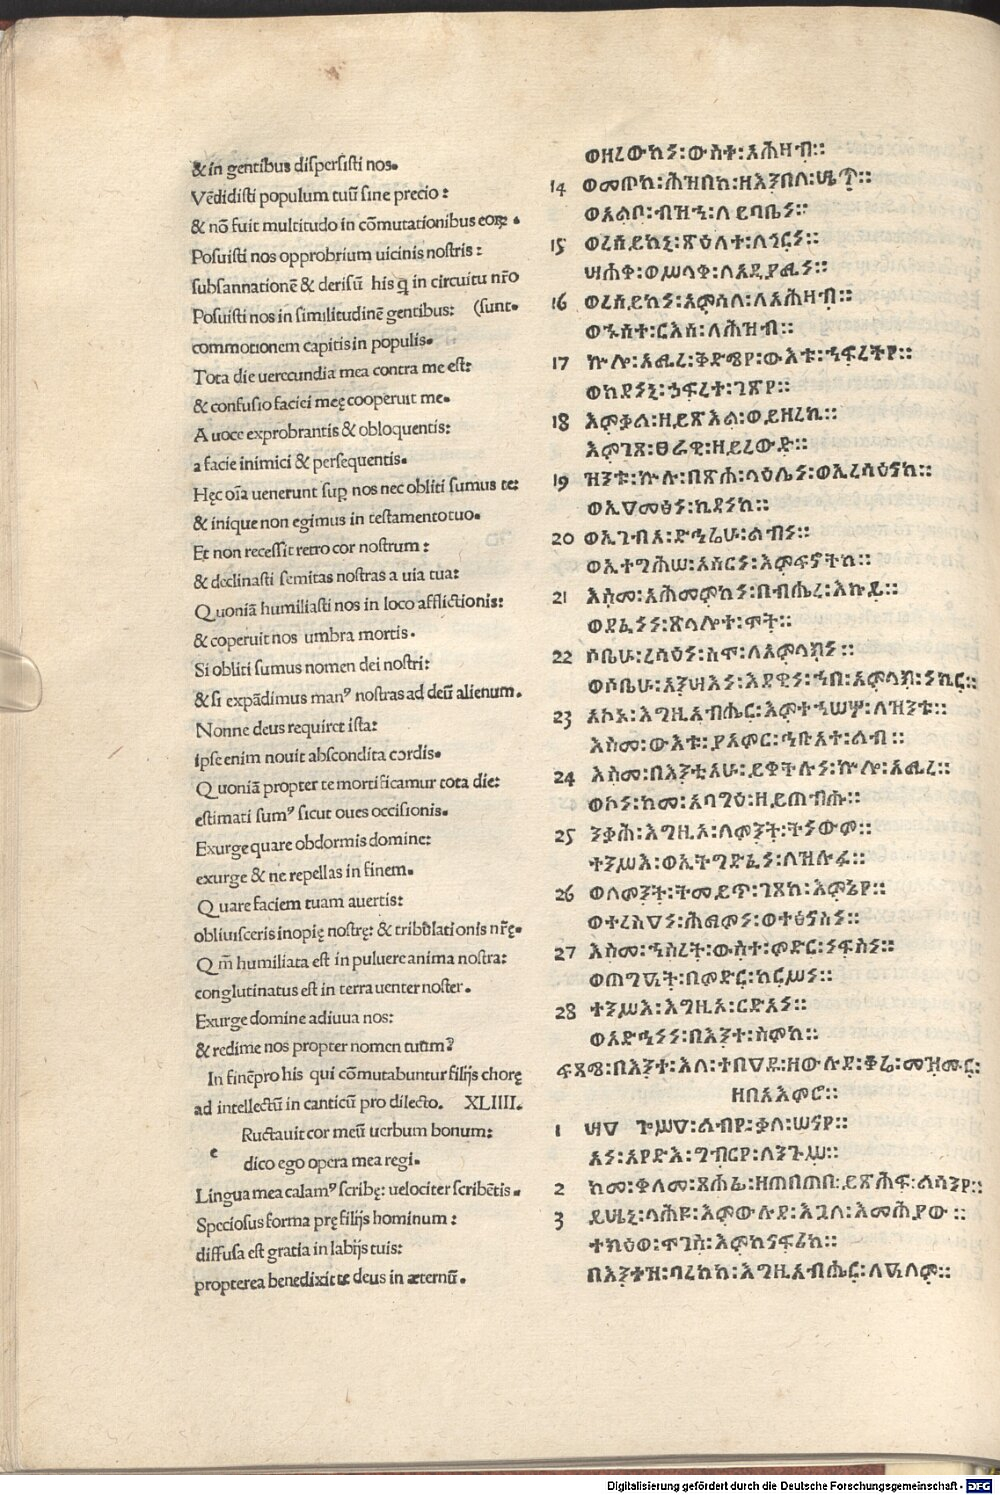 & in gentibus dispersisti nos.
Vēdidisti populum tuū sine precio :
& nō fuit multitudo in cōmutationibus eoꝝ .
Posuisti nos opprobrium uicinis nostris :
subsannationē & derisū his q̄ in circuitu nr̄o
Posuisti nos in similitudinē gentibus: (sunt.
commotionem capitis in populis.
Tota die uerecundia mea contra me est:
& confusio faciei meę cooperuit me.
A uoce exprobrantis & obloquentis:
a facie inimici & persequentis.
Hęc oīa uenerunt sup̱ nos nec obliti sumus te:
& inique non egimus in testamento tuo.
Et non recessit retro cor nostrum :
& declinasti semitas nostras a uia tua:
Quoniā humiliasti nos in loco afflictionis:
& coperuit nos umbra mortis.
Si obliti sumus nomen dei nostri:
& si expādimus manꝰ nostras ad deū alienum.
Nonne deus requiret ista:
ipse enim nouit abscondita cordis.
Quoniā propter te mortificamur tota die:
estimati sumꝰ sicut oues occisionis.
Exurge quare obdormis domine:
exurge & ne repellas in finem.
Quare faciem tuam auertis:
obliuisceris inopię nostrę: & tribulationis nr̄ę.
Qm̄ humiliata est in puluere anima nostra:
conglutinatus est in terra uenter noster.
Exurge domine adiuua nos:
& redime nos propter nomen tuum?
In finē pro his qui cōmutabuntur filijs chorę
ad intellectū in canticū pro dilecto. XLIIII.
Ructauit cor meū uerbum bonum:
e dico ego opera mea regi.
Lingua mea calamꝰ scribę: uelociter scribētis.
Speciosus forma prę filijs hominum :
diffusa est gratia in labijs tuis:
propterea benedixit te deus in æternū.
ወዘረውከነ፡ውስተ፡አሕዛብ፡፡
14 ወመጦከ፡ሕዝበከ፡ዘእንበለ፡ሤጥ፡፡
ወአልቦ፡ብዝኀ፡ለይባቤነ፡፡
15 ወረሰይከነ፡ጽዕለተ፡ለጎርነ፡፡
ሣሕቀ፡ወሥላቀ፡ለአድያሚነ፡፡
16 ወረሰይከነ፡አምሳለ፡ለአሕዛብ፡፡
ወኁሰተ፡ርእስ፡ለሕዝብ፡፡
17 ኵሎ፡አሚረ፡ቅድሜየ፡ውእቱ፡ኀፍረትየ፡፡
ወከደነኒ፡ኃፍረተ፡ገጽየ፡፡
18 እምቃለ፡ዘይጽእል፡ወይዘረኪ፡፡
እምገጸ፡ፀራዊ፡ዘይረውድ፡፡
19 ዝንቱ፡ኵሉ፡በጽሐ፡ላዕሌነ፡ወኢረሳዕናከ፡፡
ወኢዐመፅነ፡ኪዳነከ፡፡
20 ወኢገብአ፡ድኅሬሁ፡ልብነ፡፡
ወኢተግሕሠ፡አሰርነ፡እምፍኖትከ፡፡
21 እስመ፡አሕመምከነ፡በብሔረ፡እኩይ፡፡
ወደፈነነ፡ጽላሎተ፡ሞት፡፡
22 ሶቤሁ፡ረሳዕነ፡ስሞ፡ለአምላክነ፡፡
ወሶቤሁ፡አንሣእነ፡እደዊነ፡ኀበ፡አምላክ፡ነኪር፡፡
23 አኮኑ፡እግዚአብሔር፡እምተኀሠሦ፡ለዝንቱ፡፡
እስመ፡ውእቱ፡ያአምር፡ኅቡአተ፡ልብ፡፡
24 እስመ፡በእንቲአሁ፡ይቀትሉነ፡ኵሎ፡አሚረ፡፡
ወኮነ፡ከመ፡አባግዕ፡ዘይጠብሑ፡፡
25 ንቃሕ፡እግዚኦ፡ለምንት፡ትነውም፡፡
ተንሥእ፡ወኢትግድፈነ፡ለዝሉፉ፡፡
26 ወለምንት፡ትመይጥ፡ገጸከ፡እምኔየ፡፡
ወተረስዐነ፡ሕልምነ፡ወተፅናስነ፡፡
27 እስመ፡ኀስረት፡ውስተ፡ምድር፡ነፍስነ፡፡
ወጠግዐት፡በምድር፡ከርሥነ፡፡
28 ተንሥእ፡እግዚኦ፡ርድአነ፡፡
ወአድኅነነ፡በእንተ፡ስምከ፡፡
፵፬፡በእንተ፡እለ፡ተበዐዱ፡ዘውሉደ፡ቆሬ፡መዝሙር፡
ዘበአእምሮ፡፡
1 ጐሥዐ፡ልብየ፡ቃለ፡ሠናየ፡፡
አነ፡አየድእ፡ግብርየ፡ለንጉሥ፡፡
2 ከመ፡ቀለመ፡ጸሐፊ፡ዘጠበጠበ፡ይጽሕፍ፡ልሳንየ፡፡
3 ይሤኒ፡ላሕዩ፡እምውሉደ፡እጓለ፡እመሕያው፡፡
ተክዕወ፡ሞገስ፡እምከናፍሪከ፡፡
በእንተዝ፡ባረከከ፡እግዚአብሔር፡ለዓለም፡፡
Digitalisierung gefördert durch die Deutsche Forschungsgemeinschaft - DFG